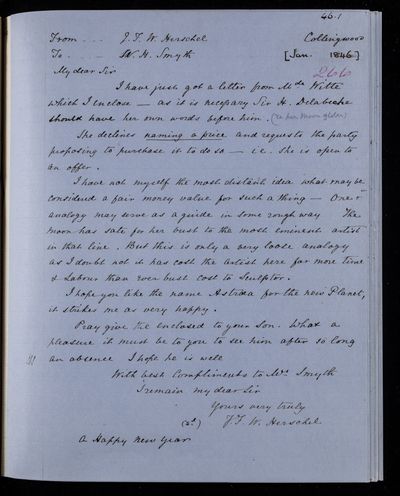 46.1
From - - - J. F. W. Herschel Collingwood
To - - - W. H. Smyth [Jan. 1846]
266
My dear Sir
I have just got a letter from Mde Witte
which I enclose — as it is necessary Sir H. Delabeche
should have her own words before him. (re her Moon globe)
She declines naming a price and requests the party
proposing to purchase it to do so — i.e. she is open to
an offer.
I have not myself the most distant idea what may be
considered a fair money value for such a thing — One
analogy may serve as a guide in some rough way The
moon has sate for her bust to the most eminent artist
in that line. But this is only a very loose analogy
as I doubt not it has cost the artist here far more time
& Labour than ever bust cost to Sculptor.
I hope you like the name Astræa for the new Planet,
it strikes me as very happy.
Pray give the enclosed to your Son. What a
pleasure it must be to you to see him after so long
an absence I hope he is well
With best Compliments to Mrs. Smyth
I remain my dear Sir
Yours very truly
J. F. W. Herschel
A Happy New Year